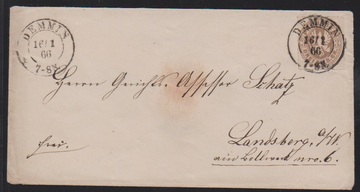 DEMMIN
16/1
66
7-8V.
DEMMIN
16/1
66
7-8V.
Herrn Gerichts-Assessor Schatz
Landsberg a/W.
frei.
am Bollwerk nro. 6.